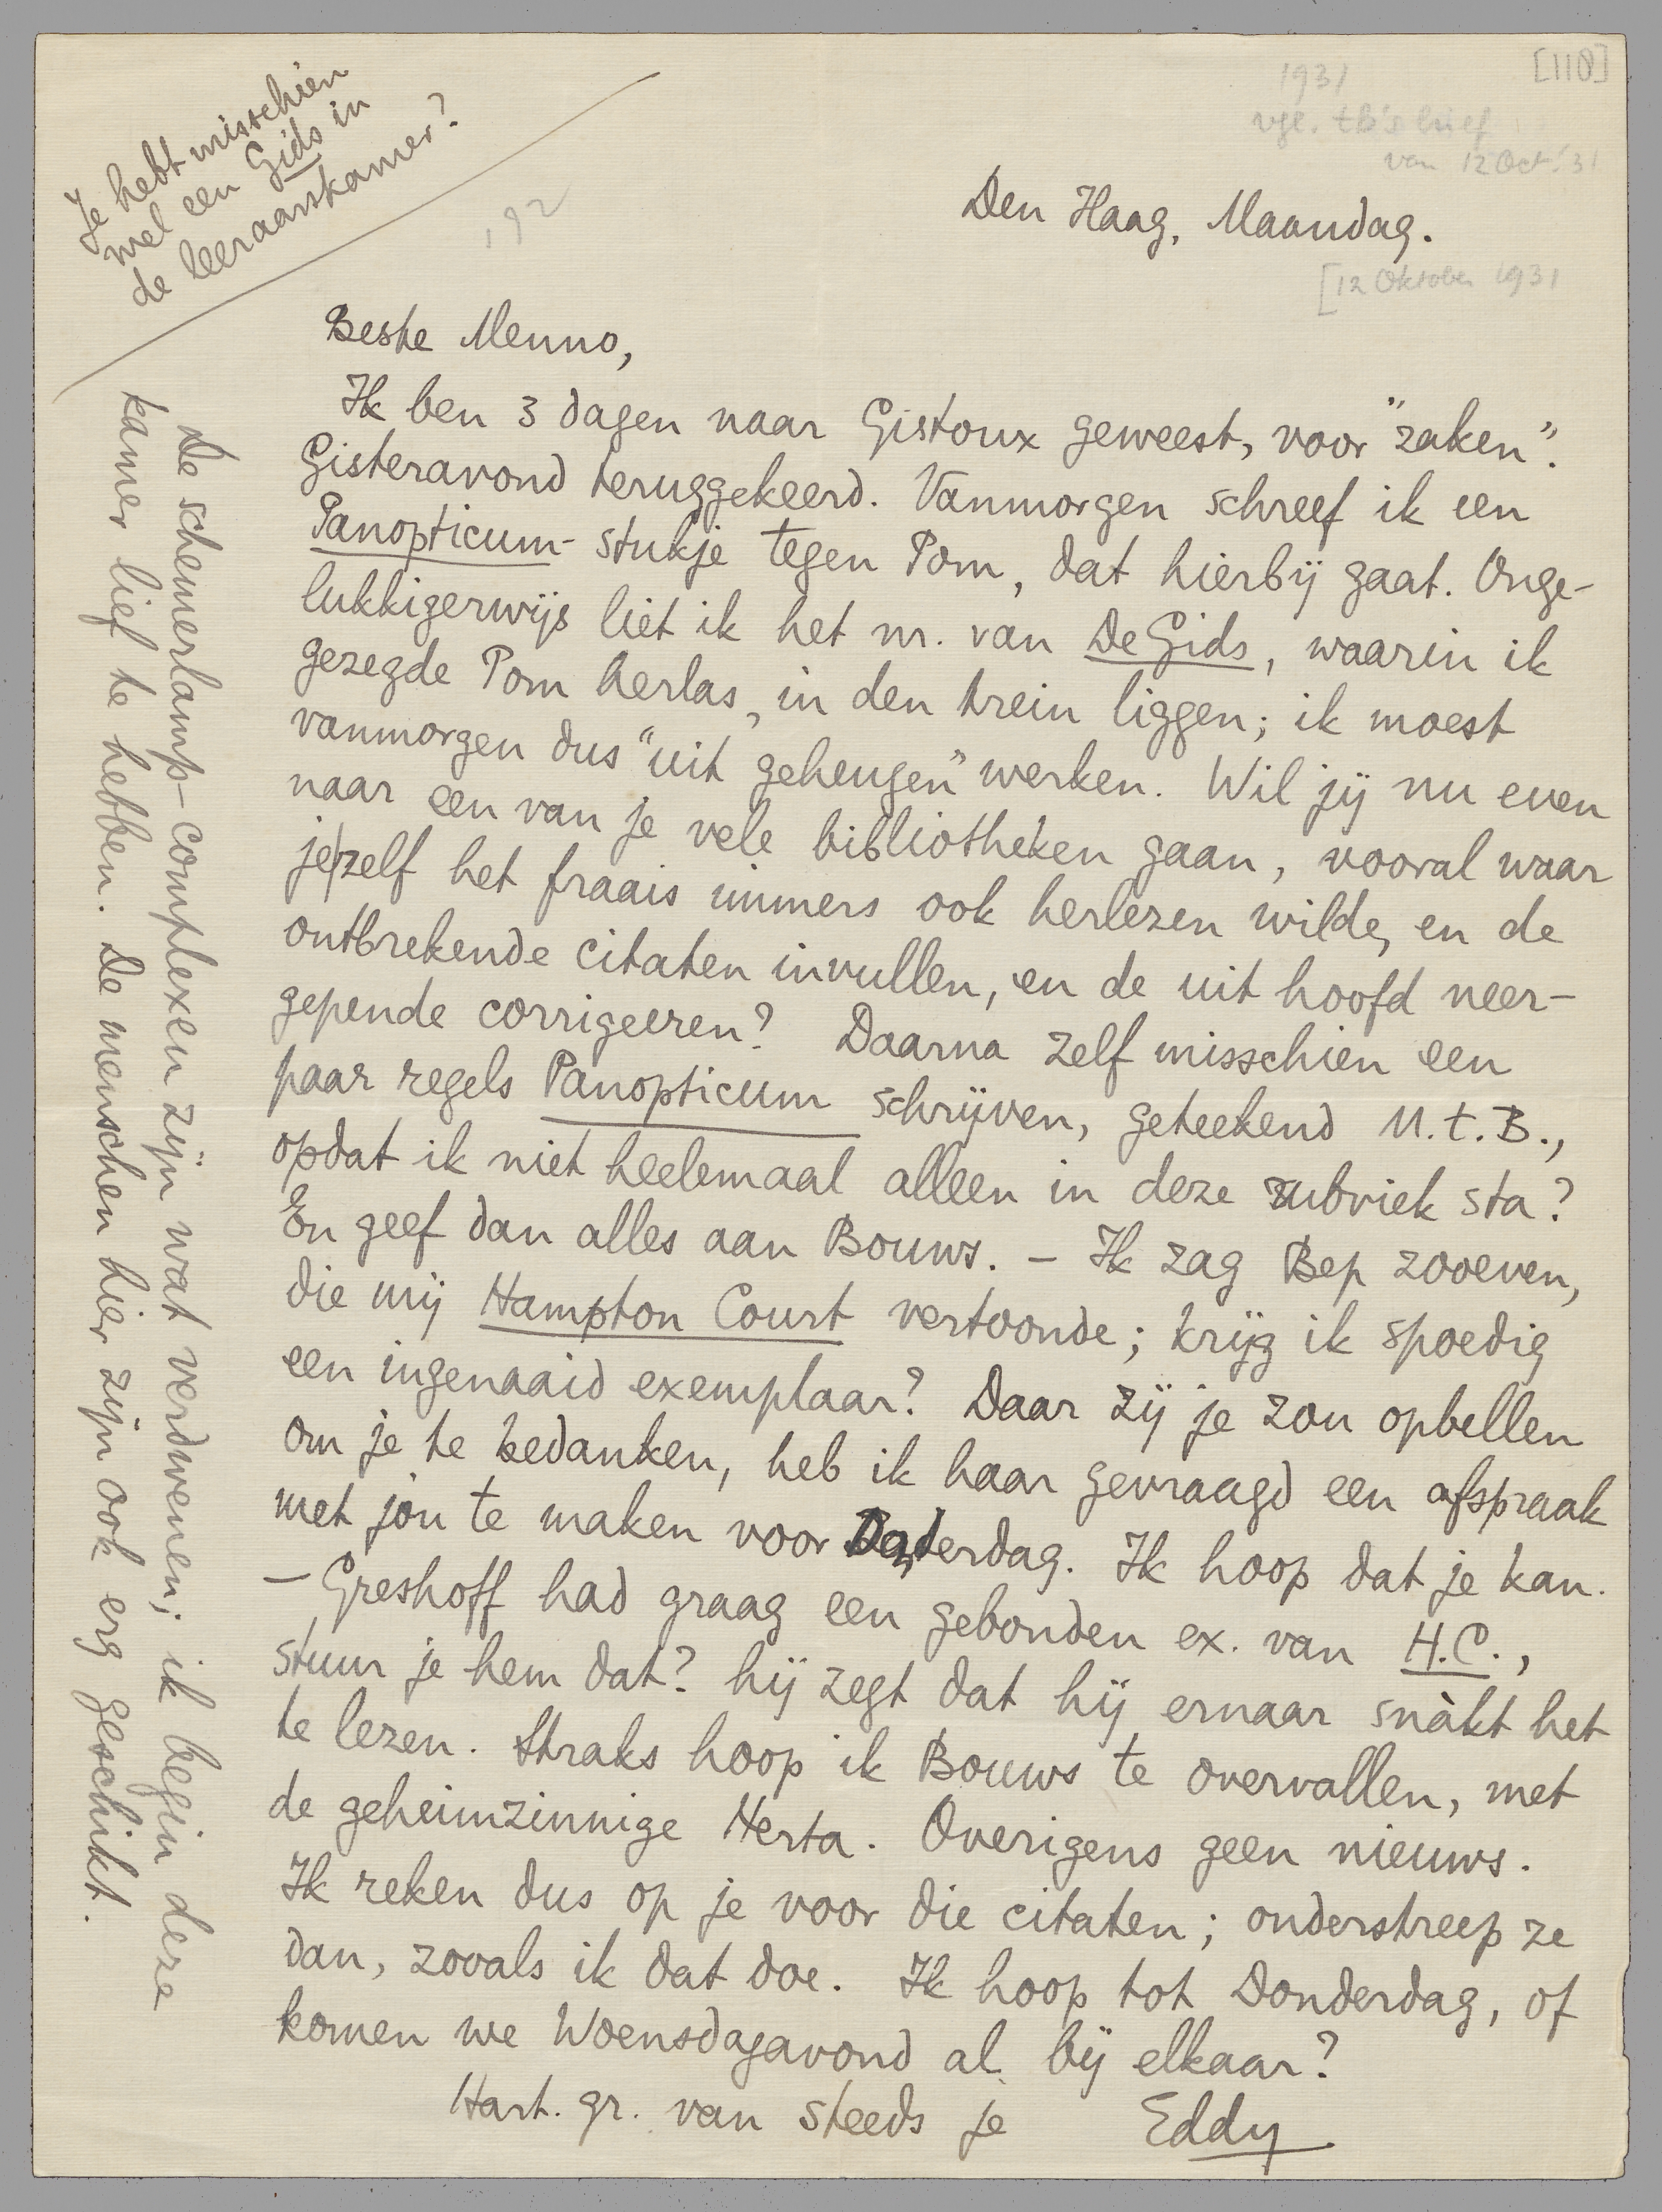 [118]
1931
vgl. tB's brief
van 12 Oct. '31
Je hebt misschien
wel een Gids in
de leeraarskamer?
192
Den Haag, Maandag.
[12 Oktober 1931
Beste Menno,
Ik ben 3 dagen naar Gistoux geweest, voor "zaken".
Gisteravond teruggekeerd. Vanmorgen schreef ik een
Panopticum-stukje tegen Pom, dat hierbij gaat. Onge-
lukkigerwijs liet ik het nr. van De Gids, waarin ik
gezegde Pom herlas, in den trein liggen; ik moest
vanmorgen dus "uit geheugen" werken. Wil jij nu even
naar een van je vele bibliotheken gaan, vooral waar
je zelf het fraais immers ook herlezen wilde, en de
ontbrekende citaten invullen, en de uit hoofd neer-
gepende corrigeeren? Daarna zelf misschien een
paar regels Panopticum schrijven, geteekend M.t.B.,
opdat ik niet heelemaal alleen in deze rubriek sta?
En geef dan alles aan Bouws. – Ik zag Bep zooeven,
die mij Hampton Court vertoonde; krijg ik spoedig
een ingenaaid exemplaar? Daar zij je zou opbellen
om je te bedanken, heb ik haar gevraagd een afspraak
met jou te maken voor Donderdag. Ik hoop dat je kan.
– Greshoff had graag een gebonden ex. van H.C.,
stuur je hem dat? hij zegt dat hij ernaar snàkt het
te lezen. Straks hoop ik Bouws te overvallen, met
de geheimzinnige Herta. Overigens geen nieuws.
Ik reken dus op je voor die citaten; onderstreep ze
dan, zooals ik dat doe. Ik hoop tot Donderdag, of
komen we Woensdagavond al bij elkaar?
Hart. gr. van steeds je Eddy
De schemerlamp-complexen zijn wat verdwenen; ik begin deze
kamer lief te hebben. De menschen hier zijn ook erg geschikt.